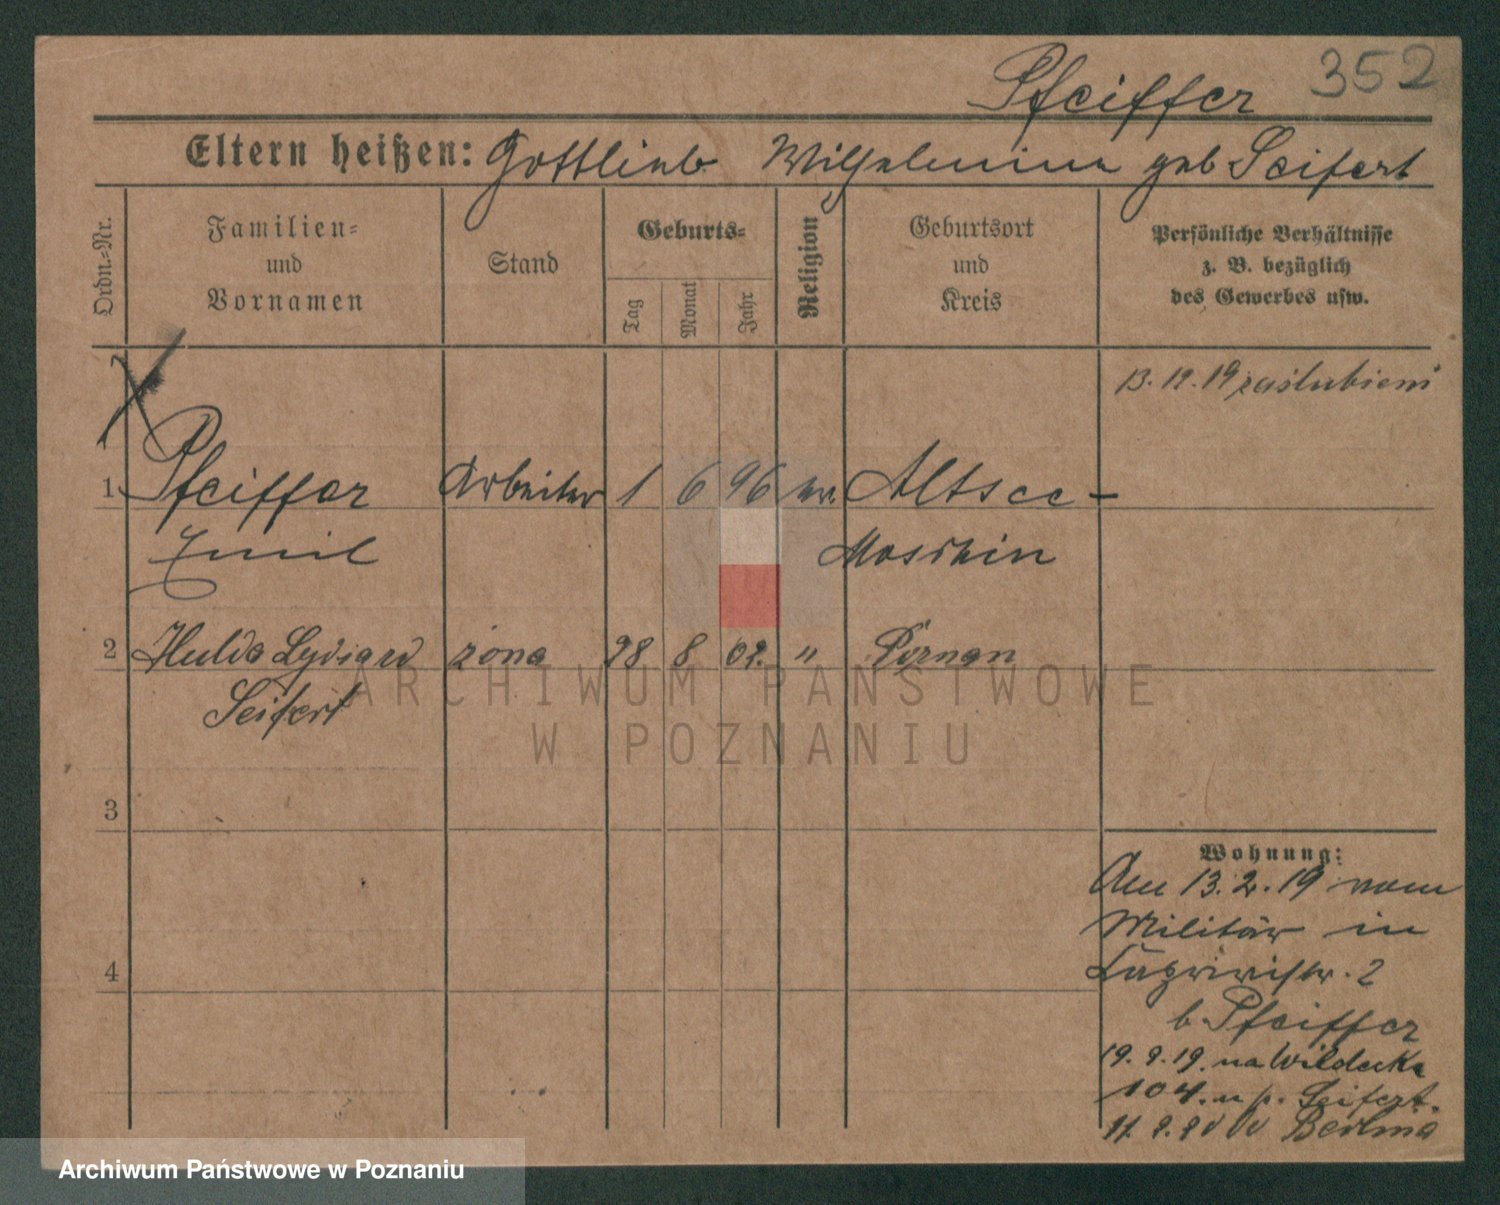 Pfeiffer 352
Eltern heißen: Gottlieb Wilhelmine geb Seifert
Ordn.-Nr.
Familien-
und
Vornamen
Stand
Geburts-
Tag
Monat
Jahr
Religion
Geburtsort
und
Kreis
Persönliche Verhältnisse
z. B. bezüglich
des Gewerbes usw.
13.12.19 zaślubieni
1 Pfeiffer Arbeiter 1 6 96 ev. Altsee –
Emil Moschin
2 Hulda żona 28 8 02. " Poznan
Seifert
3
4
Wohnung:
Am 13.2.19 vom
Militär in
2
b. Pfeiffer
19.9.19. na Wildecka
104. u p. Seifert.
Berlina
ARCHIWUM PAŃSTWOWE
W POZNANIU
Archiwum Państwowe w Poznaniu